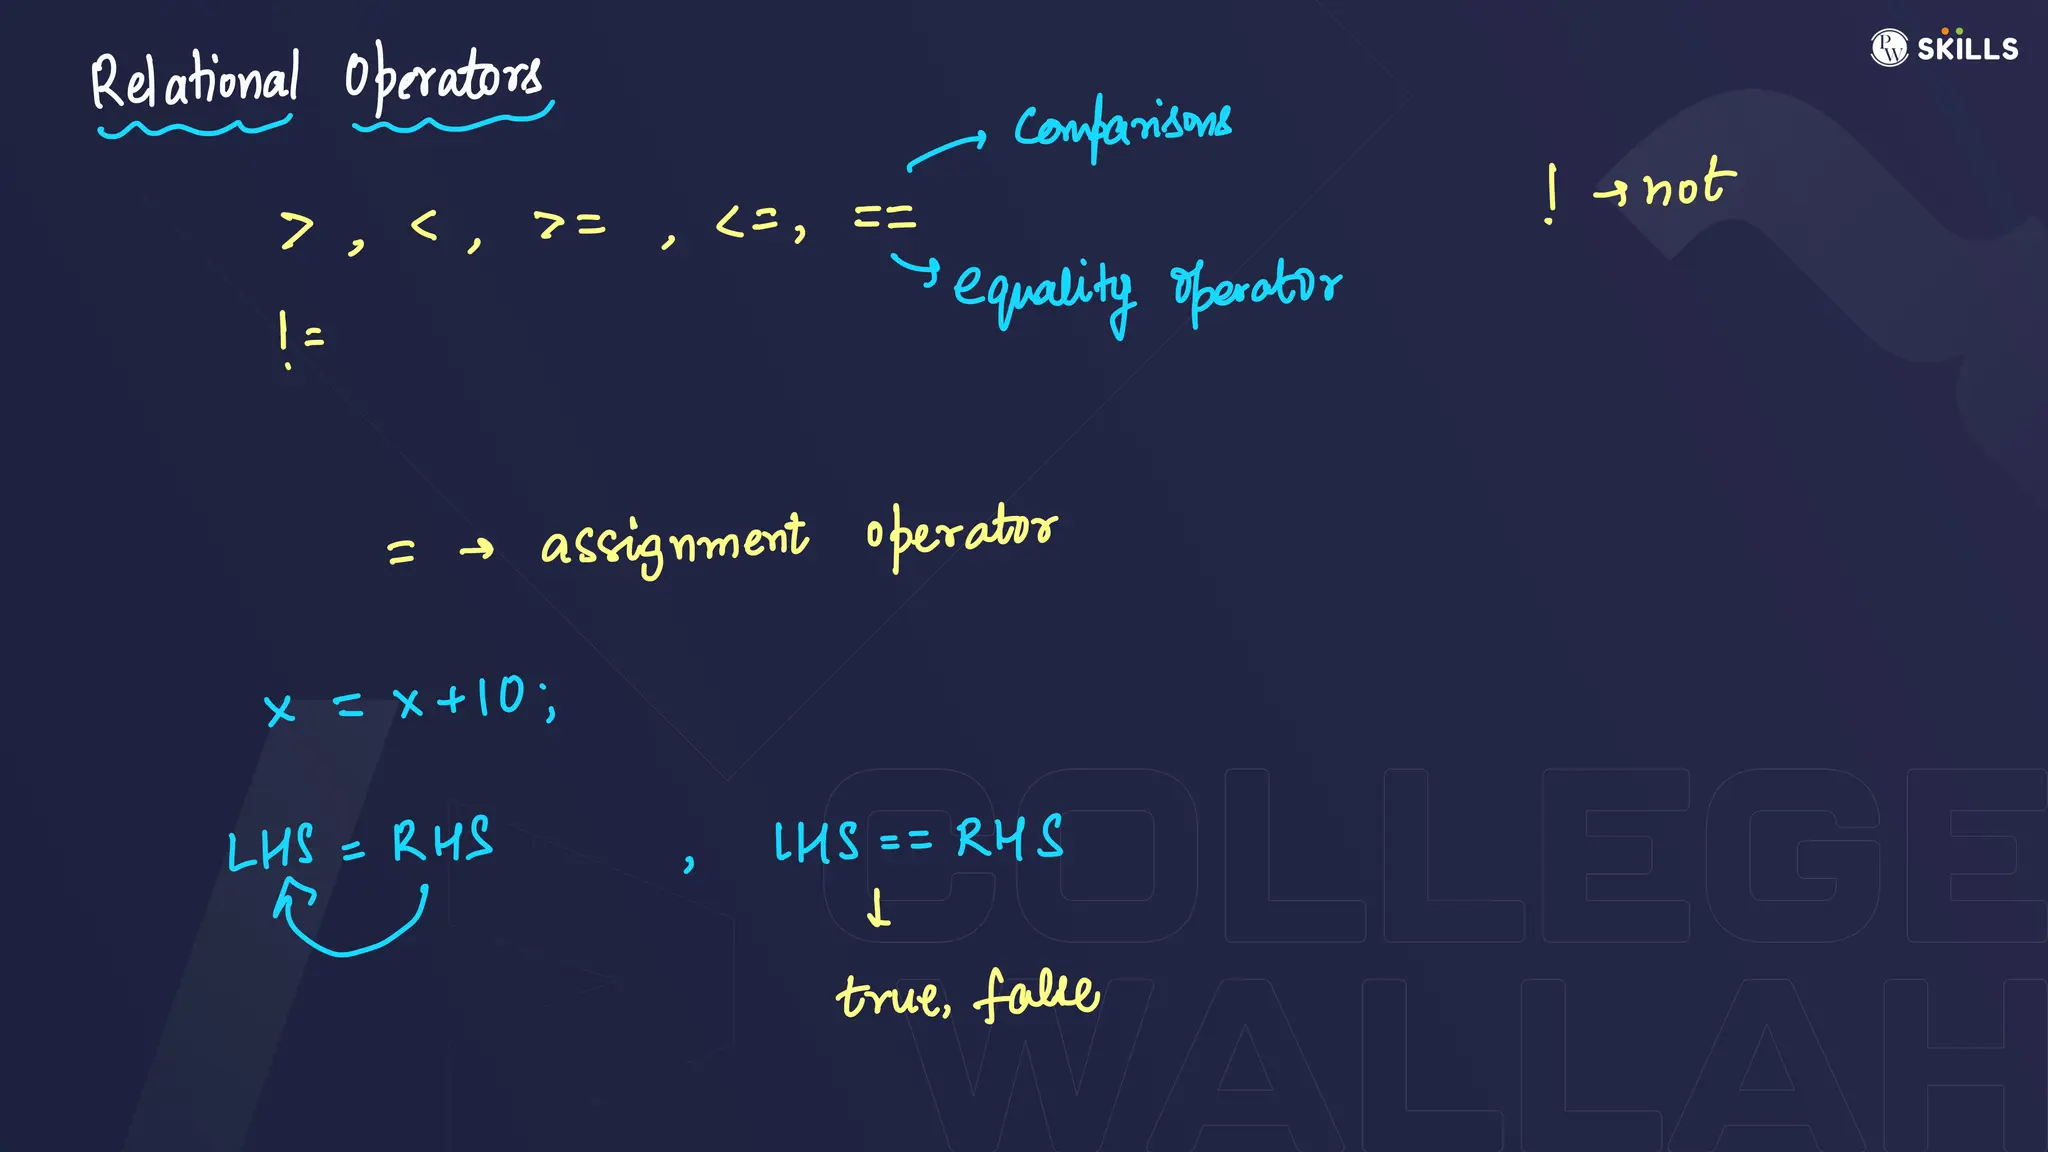 Relational Operators
PW SKILLS
→ comparisons
> , < , >= , <= , ==
! → not
→ equality operator
!=
= → assignment operator
x = x + 10 ;
LHS = RHS , LHS == RHS
↓
true, false
COLLEGE
WALLAH